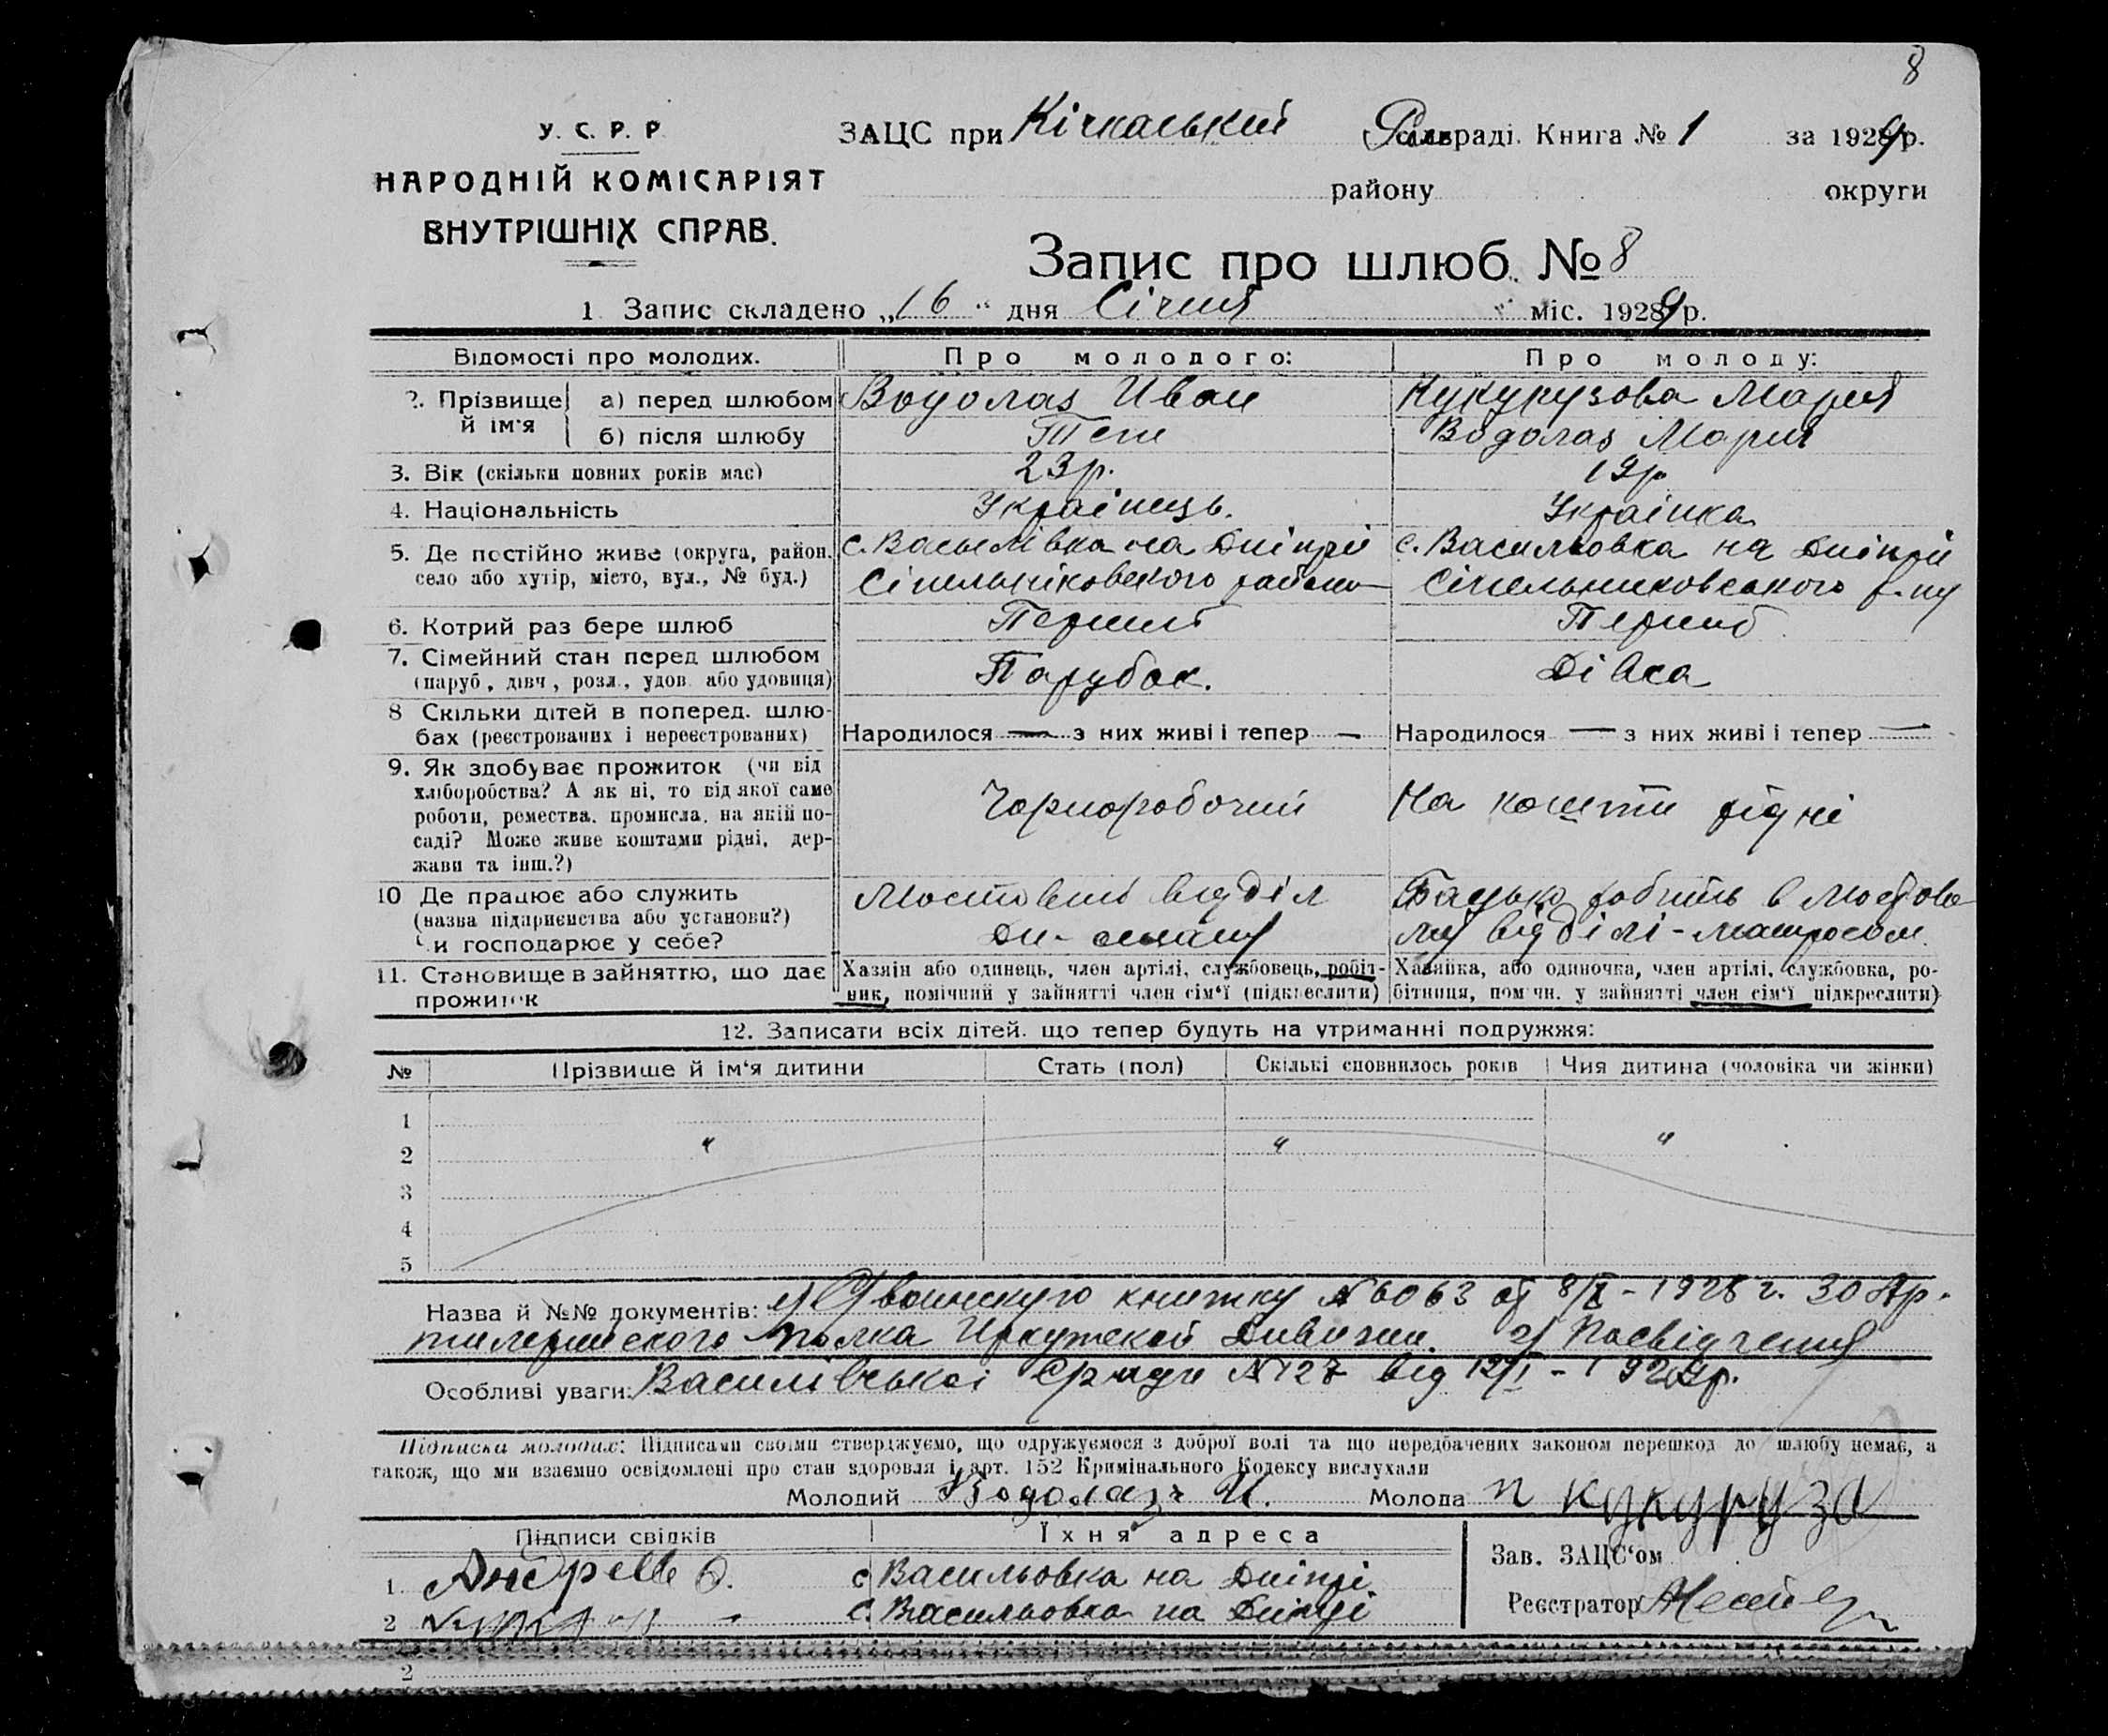 8
У. С. Р. Р.
НАРОДНІЙ КОМІСАРІЯТ
ВНУТРІШНІХ СПРАВ.
ЗАЦС при Кічкаський раді. Книга № 1 за 1929 р.
району округи
Запис про шлюб № 8
1 Запис складено „16“ дня Січня міс. 1929 р.
Відомості про молодих. Про молодого: Про молоду:
2. Прізвище й ім'я а) перед шлюбом Водолаз Иван Кукурузова Мария
б) після шлюбу Теж Водолаз Мария
3. Вік (скільки повних років має) 23р. 19р
4. Національність Українець. Українка
5. Де постійно живе (округа, район. село або хутір, місто, вул., № буд.)
с. Васылівка на Дніпрі с. Васильовка на Дніпрі
Сінельніковского району Сінельниковського р-ну
6. Котрий раз бере шлюб Перший Перший
7. Сімейний стан перед шлюбом Парубок. Дівка
(паруб., дівч., розл., удов. або удовиця)
8 Скільки дітей в поперед. шлюбах (реєстрованих і нереєстрованих)
Народилося — з них живі і тепер — Народилося — з них живі і тепер —
9. Як здобуває прожиток (чи від
хліборобства? А як ні, то від якої саме
роботи, ремества, промисла, на якій по-
саді? Може живе коштами рідні, дер-
жави та інш.?)
Чорноробочий На кошти рідні
10 Де працює або служить
(назва підприємства або установи?)
Чи господарює у себе?
Мостовий відділ Батько робить в мостово
му відділі - матросом.
11. Становище в зайняттю, що дає
прожиток
Хазяін або одинець, член артілі, службовець, робіт-
ник, помічний у зайнятті член сім'ї (підкреслити)
Хазяйка, або одиночка, член артілі, службовка, ро-
бітниця, пом'чн. у зайнятті член сім'ї підкреслити)
12. Записати всіх дітей. що тепер будуть на утриманні подружжя:
№ Прізвище й ім'я дитини Стать (пол) Скількі сповнилось років Чия дитина (чоловіка чи жінки)
1
2 " " "
3
4
5
Назва й №№ документів: воинскую книжку №6063 от 8/X - 1928 г. 30 Ар-
тилерийского полка Иркутской Дивизии. 2) Посвідчення
Особливі уваги: Василівської с/ради №127 від 12/I - 1929р.
Підписка молодих: Підписами своїми стверджуємо, що одружуємося з доброї волі та що передбачених законом перешкод до шлюбу немає, а
також, що ми взаємно освідомлені про стан здоровля і арт. 152 Кримінального Кодексу вислухали
Молодий Водолазъ И. Молода п кукуруза
Підписи свідків Їхня адреса
Зав. ЗАЦС'ом
1. с Васильовка на Дніпрі.
2 с. Васильовка на Дніпрі
Реєстратор
2